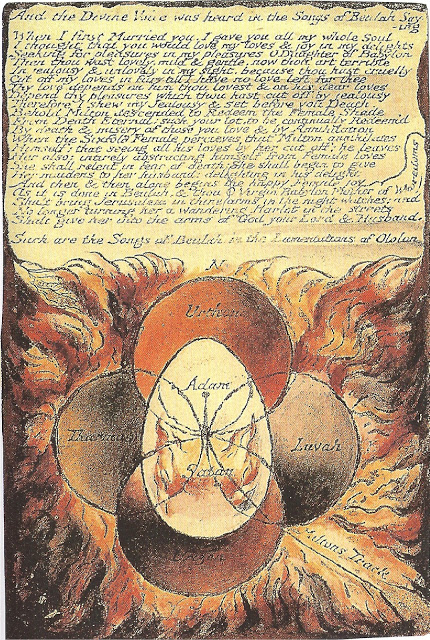 And the Divine Voice was heard in the Songs of Beulah Say
-ing
When I first Married you, I gave you all my whole Soul
I thought that you would love my loves & joy in my delights
Seeking for pleasures in my pleasures O Daughter of Babylon
Then thou wast lovely, mild & gentle, now thou art terrible
In jealousy & unlovely in my sight, because thou hast cruelly
Cut off my loves in fury till I have no love left for thee
Thy love depends on him thou lovest & on his dear loves
Depend thy pleasures which thou hast cut off by jealousy
Therefore I shew my Jealousy & set before you Death.
Behold Milton descended to Redeem the Female Shade
From Death Eternal; such your lot, to be continually Redeem'd
By death & misery of those you love & by Annihilation
When the Sixfold Female percieves that Milton annihilates
Himself: that seeing all his loves by her cut off: he leaves
Her also: intirely abstracting himself from Female loves
She shall relent in fear of death: She shall begin to give
Her maidens to her husband: delighting in his delight
And then & then alone begins the happy Female joy
As it is done in Beulah, & thou O Virgin Babylon Mother of Wh-
oredoms
Shalt bring Jerusalem in thine arms in the night watches; and
No longer turning her a wandering Harlot in the streets
Shalt give her into the arms of God your Lord & Husband.
Such are the Songs of Beulah in the Lamentations of Ololon
N
Urthona
Adam
Tharmas
Luvah
Satan
Urizen
Miltons Track